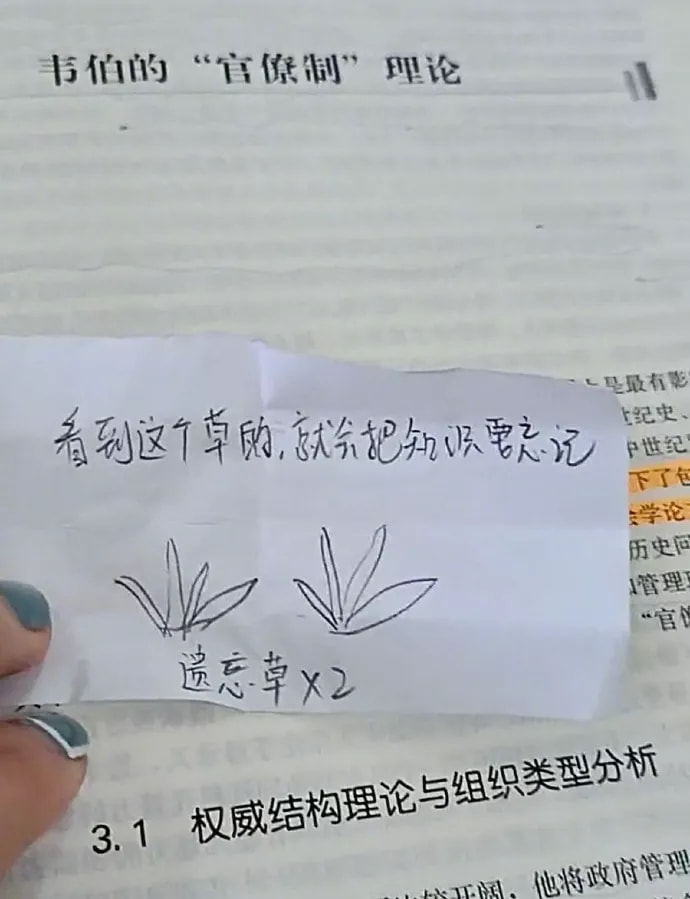 韦伯的“官僚制”理论
上是最有影
世纪史、
中世纪
看到这个草的，就会把知识要忘记
下了包
会学论
历史问
和管理
“官僚
遗忘草×2
3.1 权威结构理论与组织类型分析
较开阔，他将政府管理